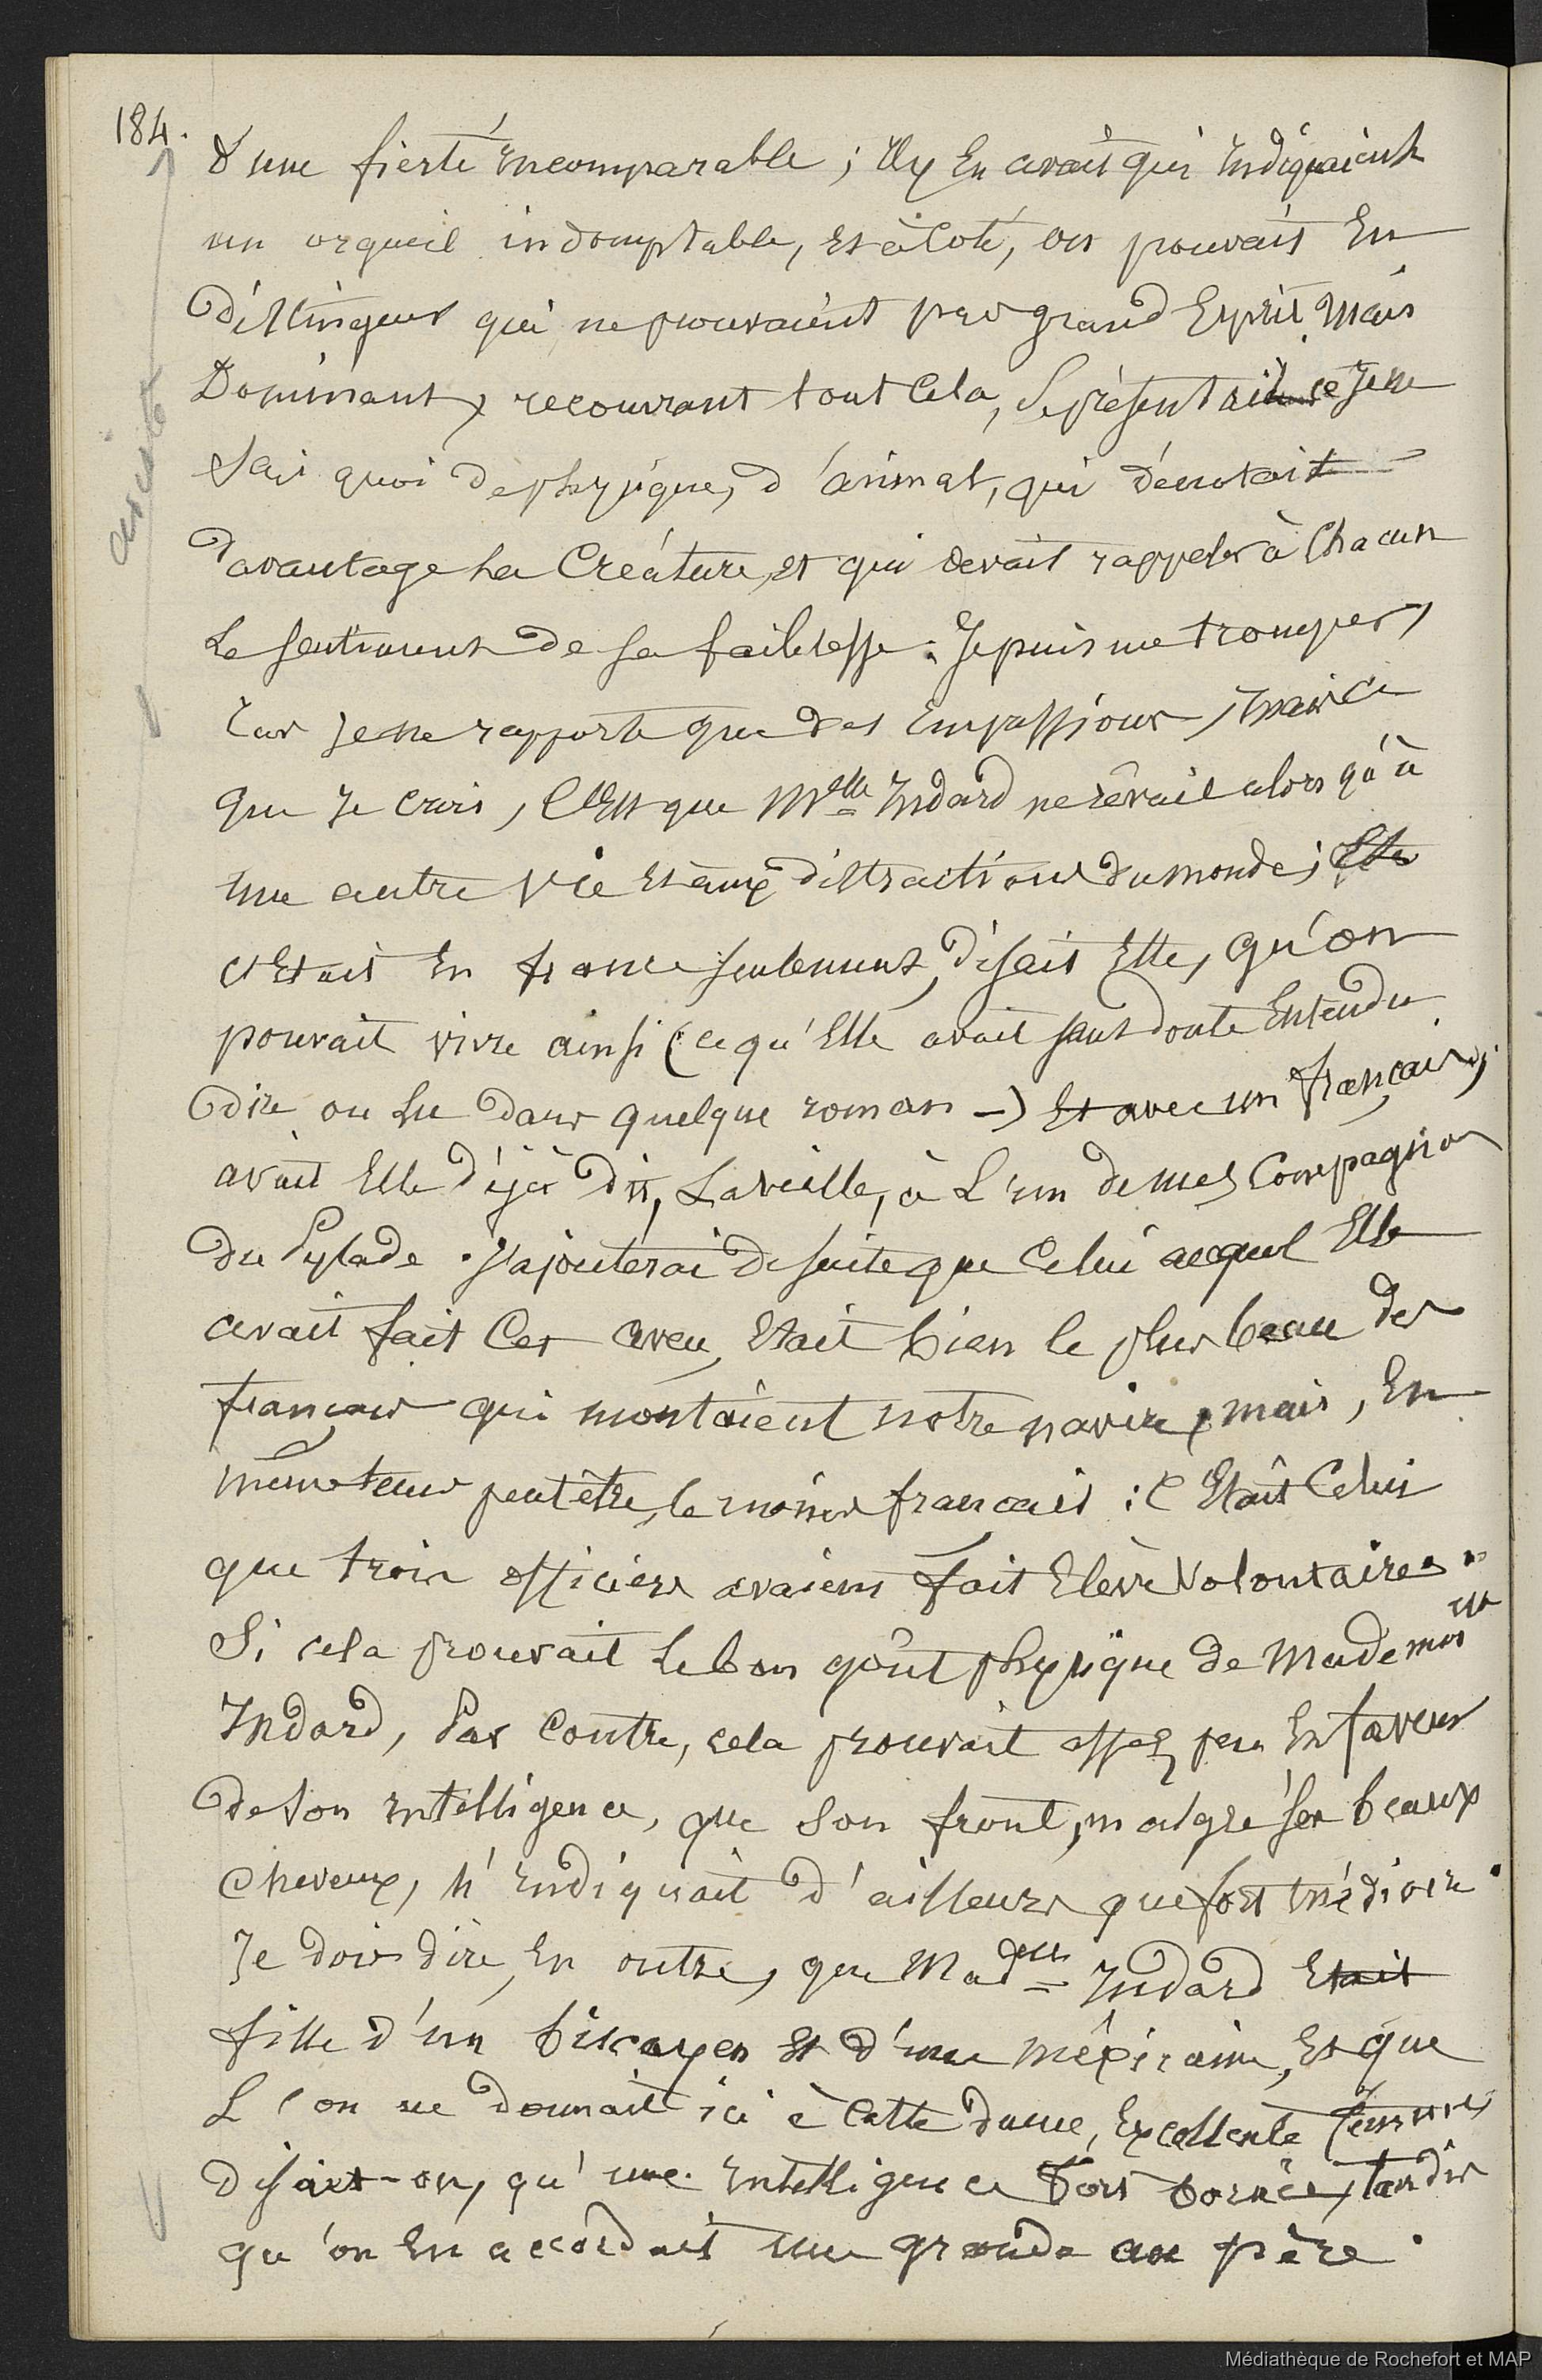 184.
d'une fierté incomparable ; Il y En avait qui Indiquaient
un orgueil indomptable, Et à Coté, on pouvait En
Distinguer qui ne prouvaient pas grand Esprit, Mais
Dominant, recouvrant tout Cela, Se présentait ce Je ne
Sais quoi de physique, d'animal, qui dénotait
Davantage La Créature, et qui devait rappeler à Chacun
Le Sentiment De Sa faiblesse. Je puis me tromper,
Car Je ne rapporte que des Impressions, Mais Ce
que Je Crois, C'Est que Melle Indard ne rêvait alors qu'à
une autre vie Et aux Distractions du monde ;
C'Etait En france seulement, Disait Elle, qu'on
pouvait vivre ainsi (Ce qu'Elle avait sans doute Entendu
Dire ou Lu Dans quelque roman -) Et avec un français,
avait Elle Déjà Dit, La veille, à L'un de mes Compagnons
du Pylade. J'ajouterai De suite que Celui auquel Elle
avait fait Cet aveu, Etait bien le plus beau des
français qui montaient notre navire, mais, En
même tems peut être, le moins français : C'Etait Celui
que trois officiers avaient fait Elève Volontaire.
Si cela prouvait Le bon goût physique de Mademoiselle
Indard, Par Contre, cela prouvait assez peu En faveur
de son Intelligence, que Son front, malgré ses beaux
Cheveux, n'Indiquait D'ailleurs que fort médiocre.
Je dois dire, En outre, que Madelle Indard Etait
fille d'un biscayen Et d'une méxicaine, Et que
L'on ne Donnait ici à Cette dame, Excellente femme,
Disait-on, qu'une Intelligence Fort bornée, tandis
qu'on En accordait une grande au père.
Médiathèque de Rochefort et MAP